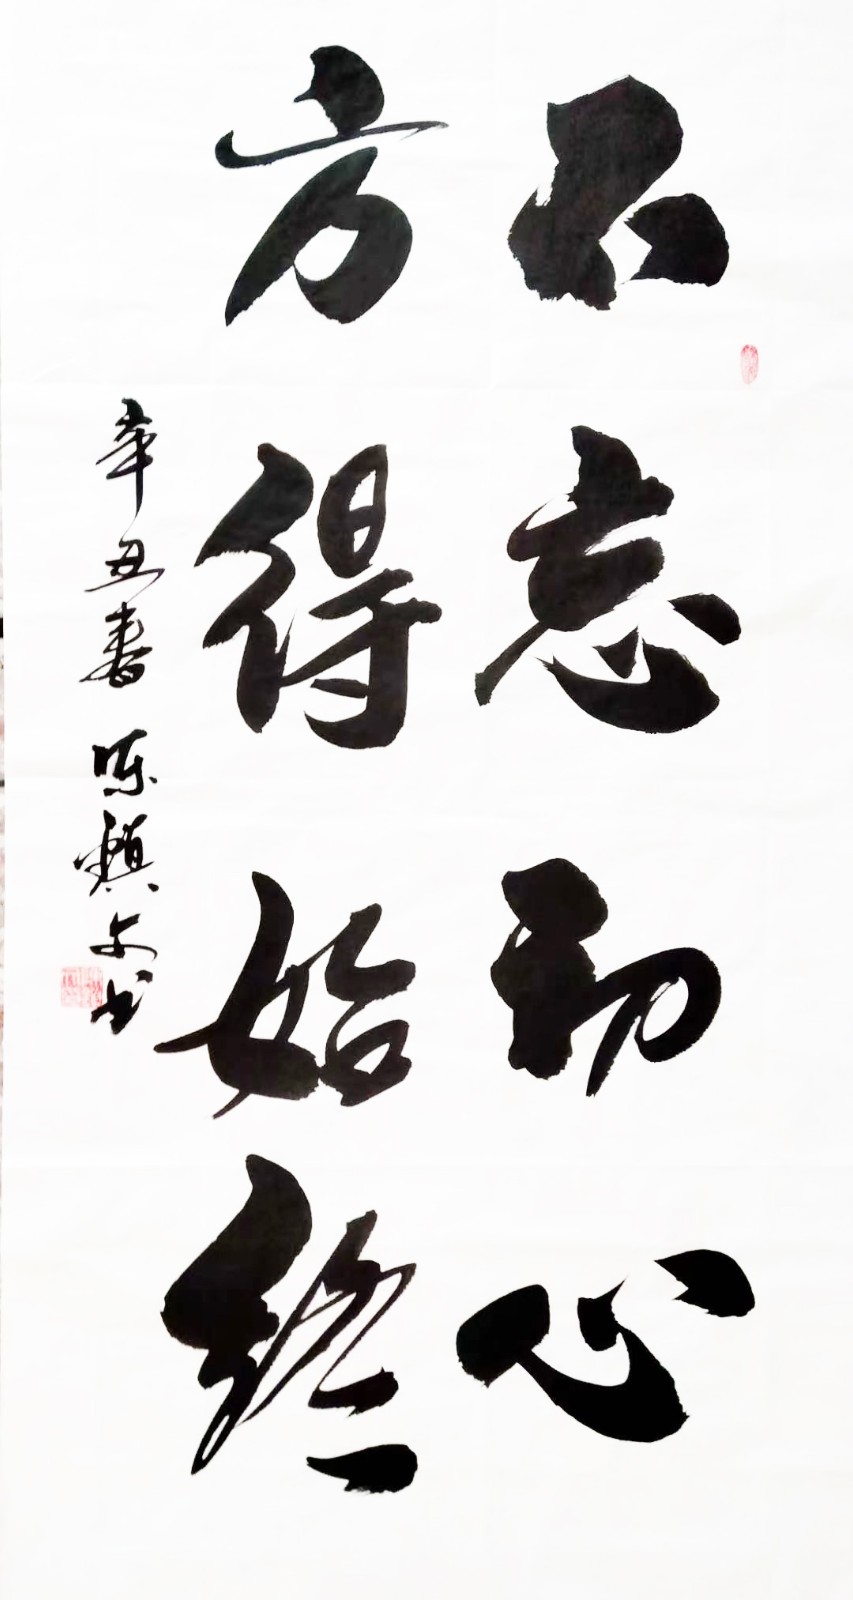 不忘初心
方得始终
辛丑春 陈镇文书